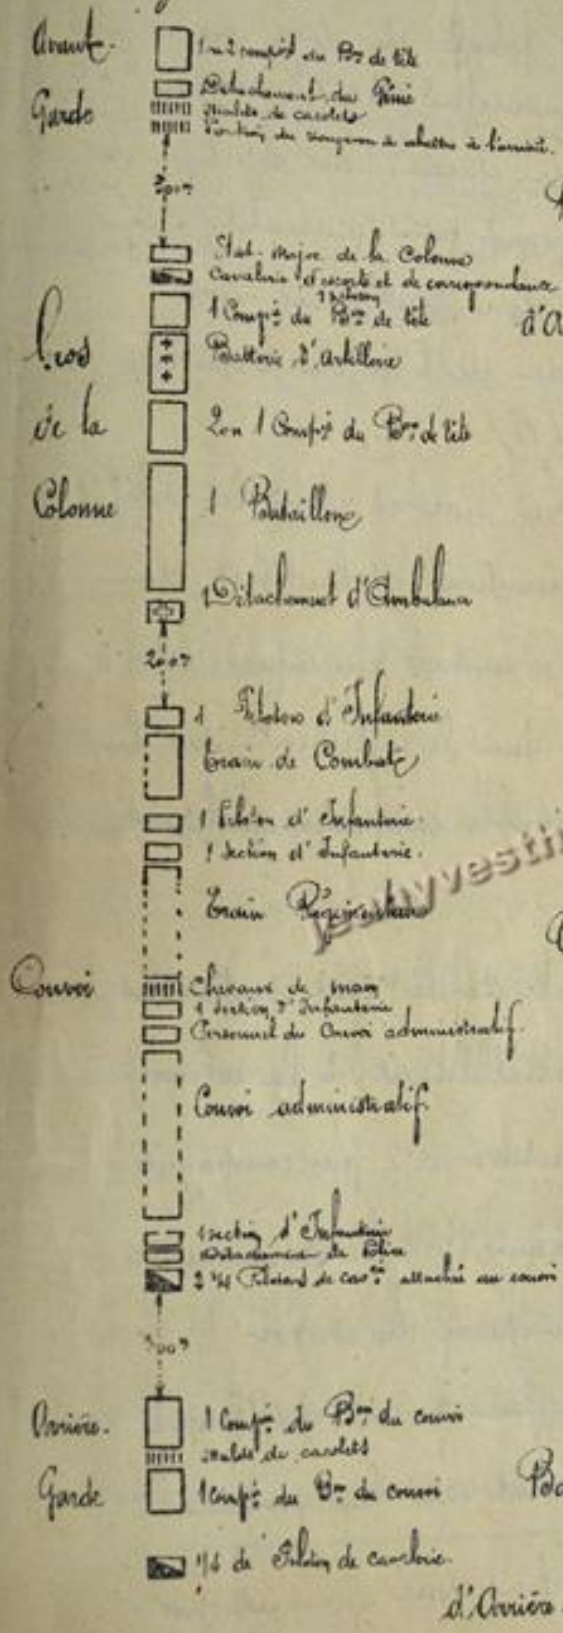 Avant-
Garde
1 ou 2 comp^ies du B^on de tête
Détachement du Génie
Mulets de cacolets
Portion du troupeau à abattre à l'arrivée.
300^m
Etat-Major de la Colonne
Cavalerie d'escorte et de correspondance
1 Peloton
1 Comp^ie du B^on de tête
d'A
Gros
de la
Colonne
Batterie d'Artillerie
2 ou 1 Comp^ie du B^on de tête
1 Bataillon
1 Détachement d'Ambulance
200^m
1 Peloton d'Infanterie
Train de Combat
1 Peloton d'Infanterie.
1 Section d'Infanterie.
Train Régimentaire
Convoi
Chevaux de main
1 Section d'Infanterie
Personnel du Convoi administratif.
Convoi administratif.
1 Section d'Infanterie
Détachement de Police
2 3/4 Pelotons de cav^rie attachés au convoi
300^m
Arrière-
Garde
1 Comp^ie du B^on du convoi
Mulets de cacolets
1 Comp^ie du B^on du convoi
Ba
1/4 de Peloton de cavalerie.
d'Arrière